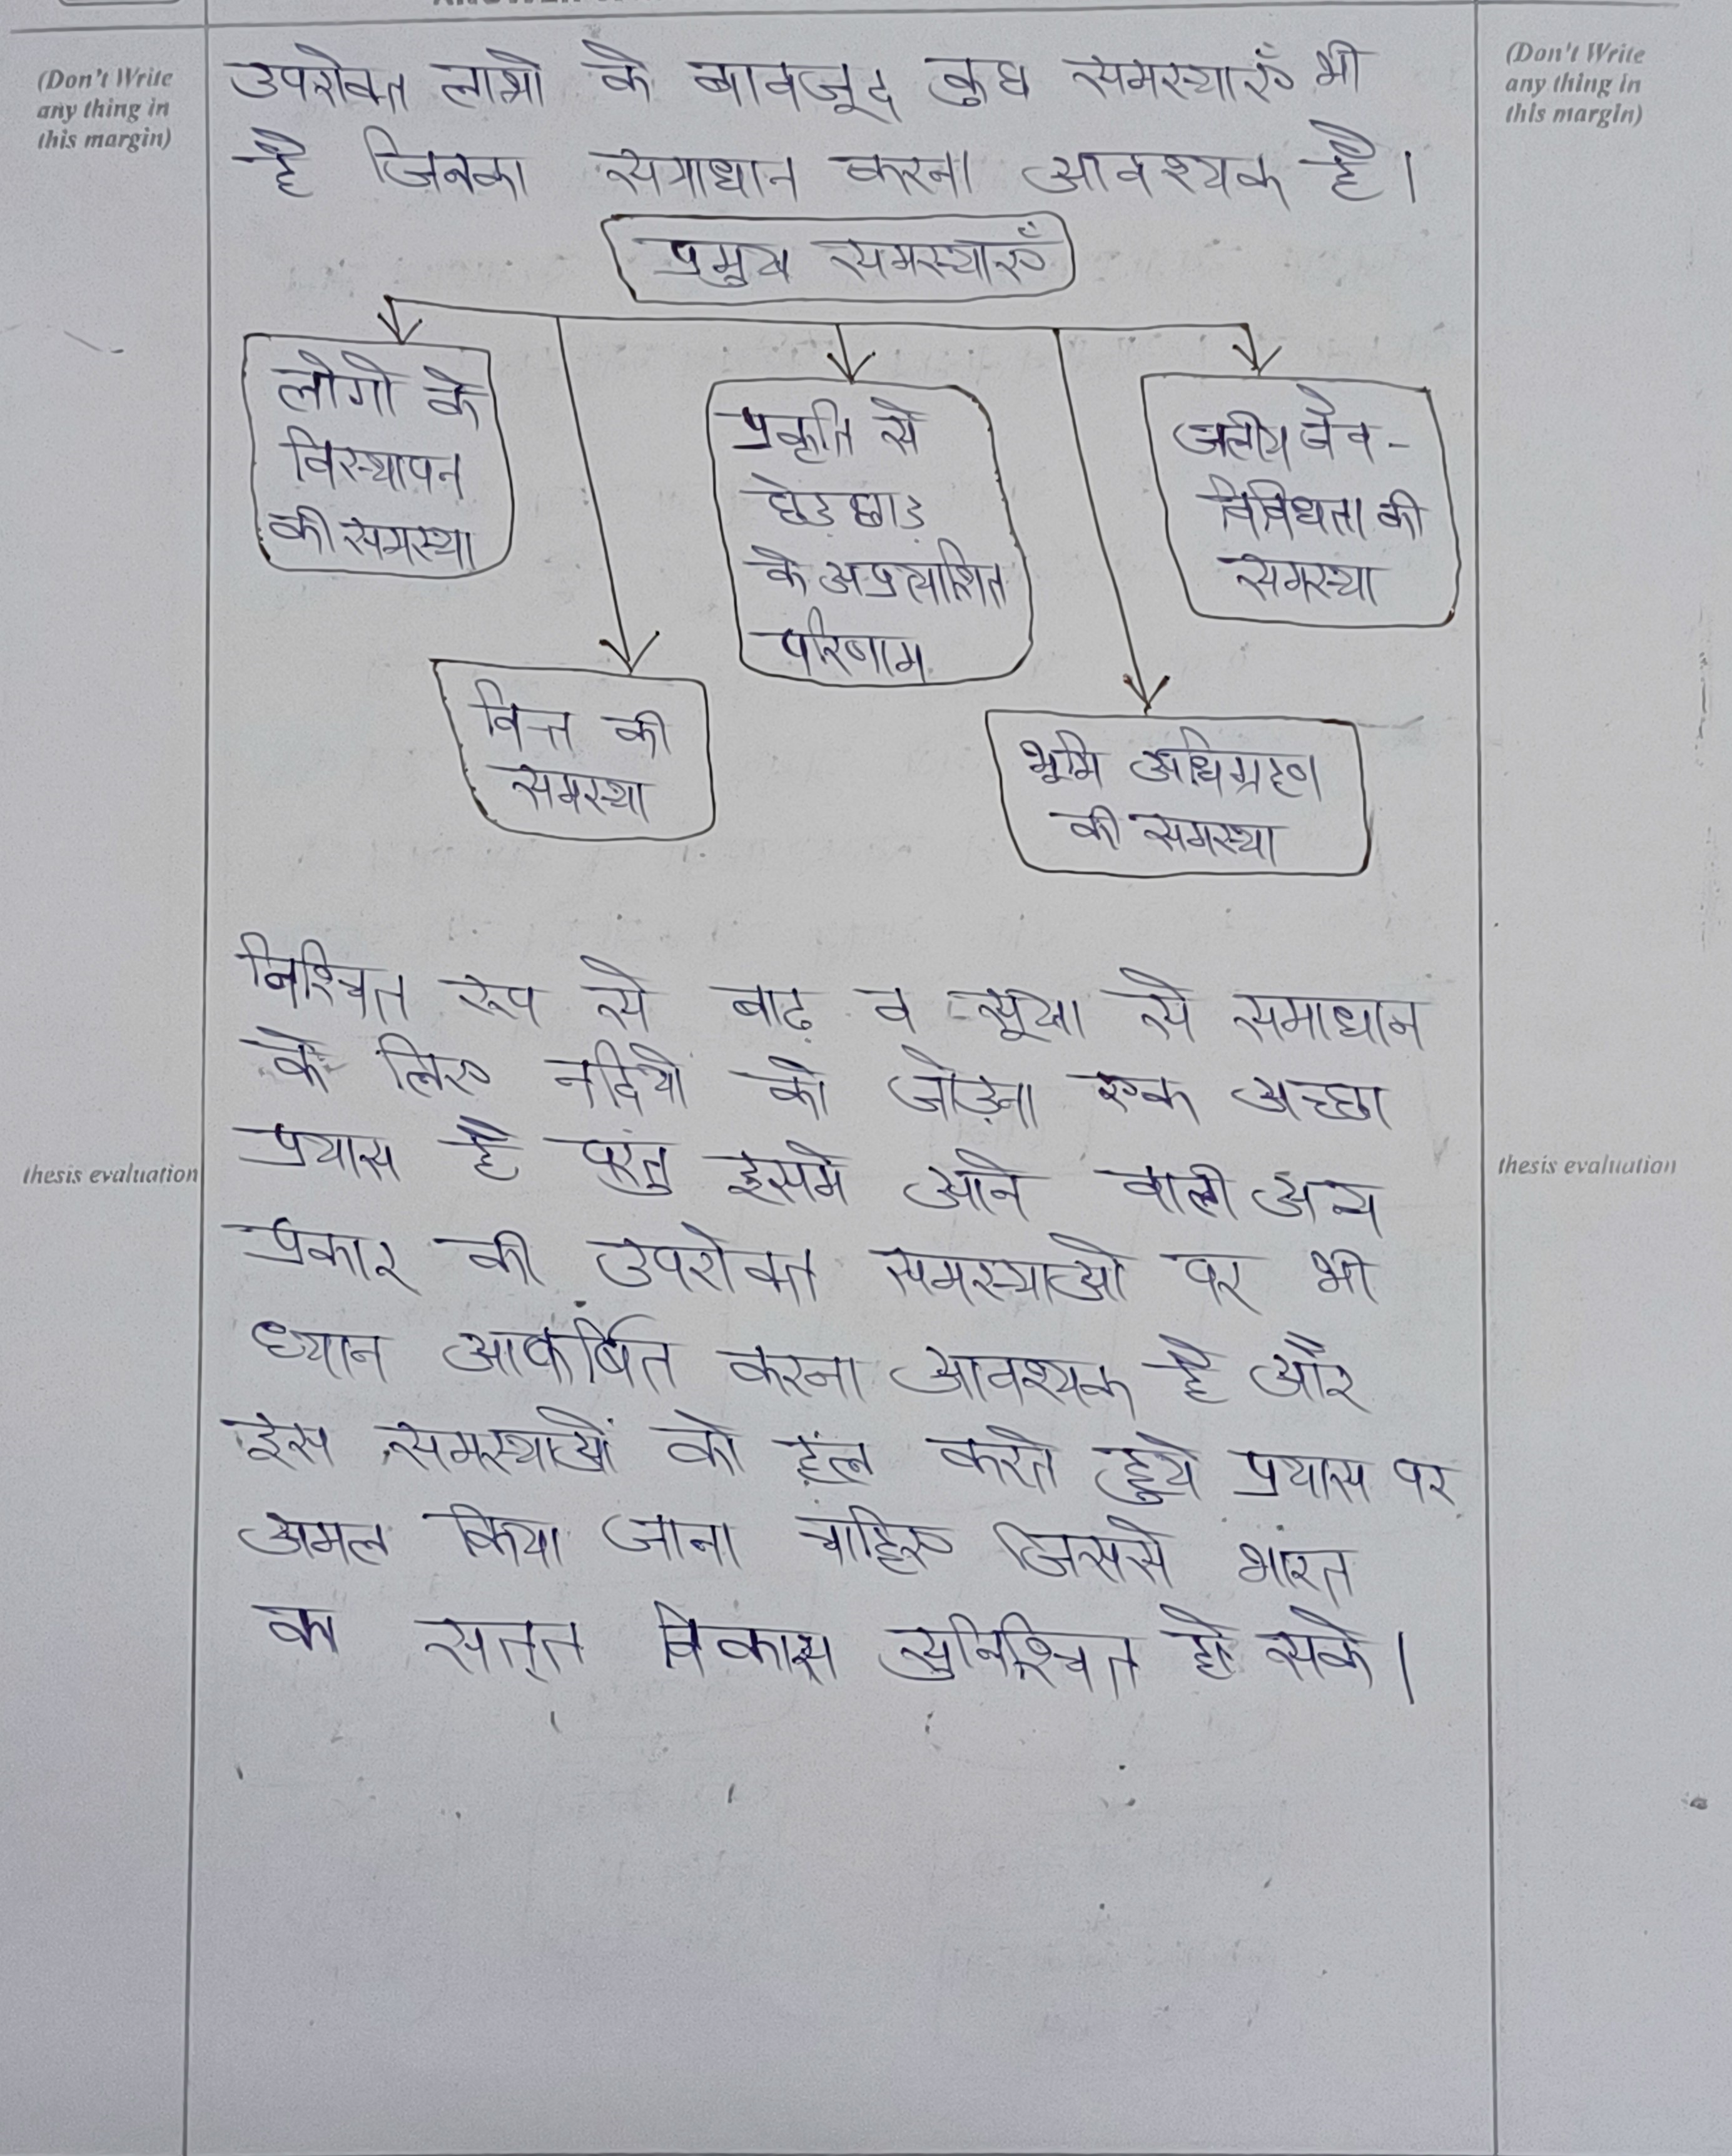 (Don't Write
any thing in
this margin)
(Don't Write
any thing in
this margin)
उपरोक्त लाभो के बावजूद कुछ समस्याएँ भी
है जिनका समाधान करना आवश्यक है।
प्रमुख समस्याएँ
लोगो के
विस्थापन
की समस्या
प्रकृति से
छेड़छाड़
के अप्रत्याशित
परिणाम
जलीय जैव-
विविधता की
समस्या
वित्त की
समस्या
भूमि अधिग्रहण
की समस्या
निश्चित रूप से बाढ़ व सूखा से समाधान
के लिए नदियो को जोड़ना एक अच्छा
प्रयास है परंतु इसमे आने वाली अन्य
प्रकार की उपरोक्त समस्याओ पर भी
ध्यान आकर्षित करना आवश्यक है और
इस समस्याओं को हल करते हुये प्रयास पर
अमल किया जाना चाहिए जिससे भारत
का सतत विकास सुनिश्चित हो सके।
thesis evaluation
thesis evaluation